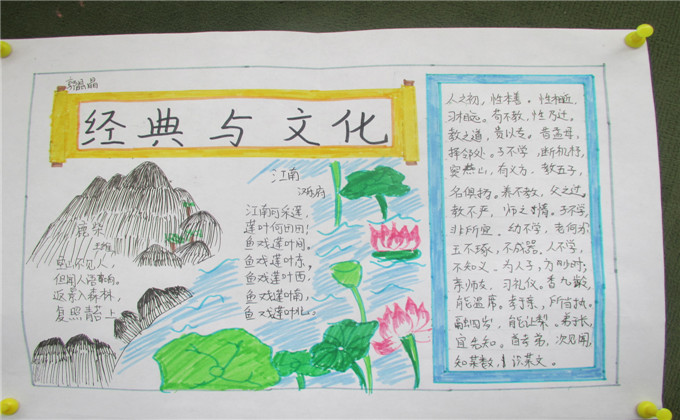 经典与文化
鹿柴
王维
空山不见人，
但闻人语响。
返景入森林，
复照青苔上
江南
汉乐府
江南可采莲，
莲叶何田田！
鱼戏莲叶间。
鱼戏莲叶东，
鱼戏莲叶西，
鱼戏莲叶南，
鱼戏莲叶北。
人之初，性本善。性相近，
习相远。苟不教，性乃迁。
教之道，贵以专。昔孟母，
择邻处。子不学，断机杼。
窦燕山，有义方。教五子，
名俱扬。养不教，父之过。
教不严，师之惰。子不学，
非所宜。幼不学，老何为
玉不琢，不成器。人不学，
不知义。为人子，方少时；
亲师友，习礼仪。香九龄，
能温席。孝于亲，所当执。
融四岁，能让梨。弟于长，
宜先知。首孝弟，次见闻，
知某数，识某文。